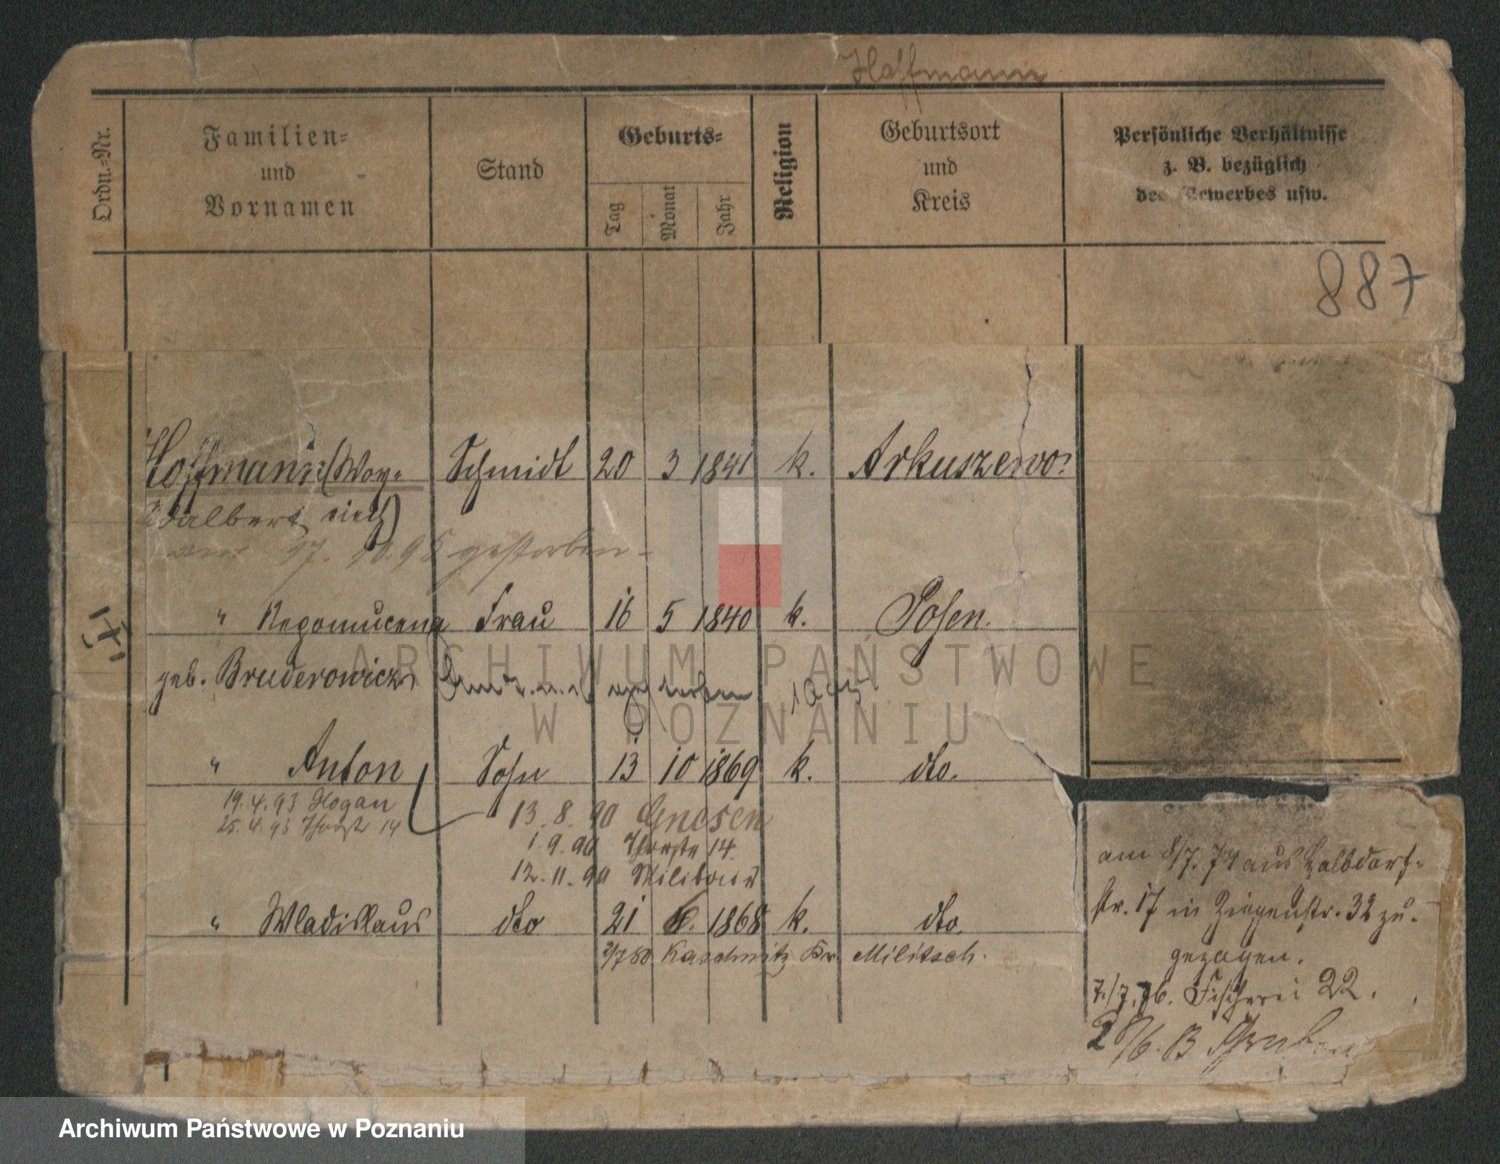 Hoffmann
Ordn.-Nr.
Familien-
und
Vornamen
Stand
Geburts-
Tag
Monat
Jahr
Religion
Geburtsort
und
Kreis
Persönliche Verhältnisse
z. B. bezüglich
des Gewerbes usw.
887
Hoffmann (Woy- Schmidt 20 3 1841 k. Arkuszewo
Adalbert ciech)
am 17. 10. 95 gestorben
" Nepomucena Frau 16 5 1840 k. Posen.
geb. Bruderowicz
" Anton Sohn 13 10 1869 k. dto.
19. 4. 93 Glogau 13. 8. 90 Gnesen
25. 4. 93 14 1. 9. 90 14.
12. 11. 90 Militair
" Wladislaus dto 21 6. 1868 k. dto
Kr. Militsch.
am 8/7. 74 aus Halbdorf-
str. 17 in Ziegenstr. 32 zu-
gezogen.
7./7. 76. Fischerei 22.
ARCHIWUM PAŃSTWOWE
W POZNANIU
Archiwum Państwowe w Poznaniu